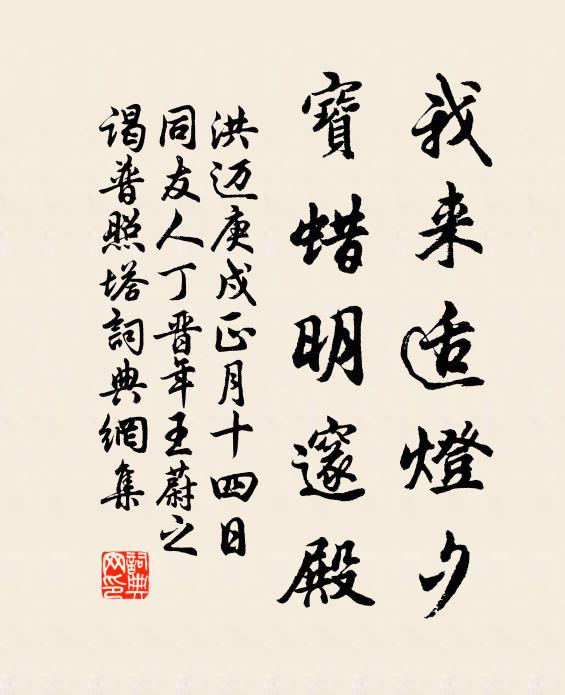 我来适燈夕
寶蜡明邃殿
洪迈庚戌正月十四日
同友人丁晋年王蔚之
谒普照塔詞典網集
詞典
网印